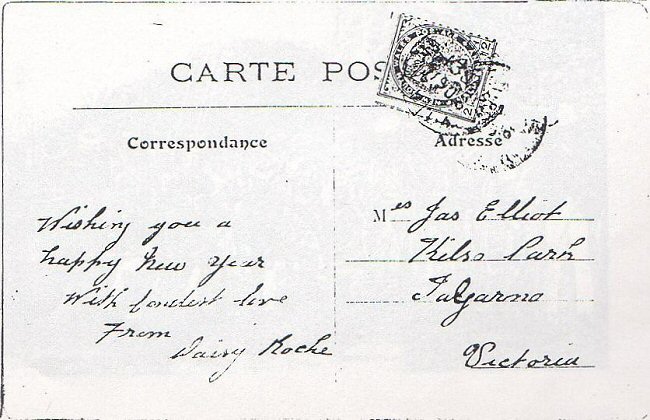 CARTE POS
Correspondance
Adresse
Wishing you a
happy New Year
With fondest love
From
Daisy Roche
Mes Jas Elliot
Kilso Park
Talgarno
Victoria